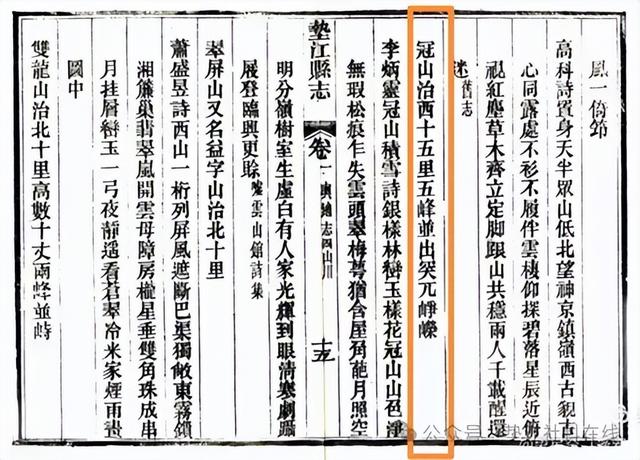 風一倚笻
高科詩置身天半眾山低北望神京鎮嶺西古貌古
心同露處不衫不履伴雲棲仰探碧落星辰近俯
視紅塵草木齊立定脚跟山共穩兩人千載醒還
迷舊志
冠山治西十五里五峰並出突兀崢嶸
李炳靈冠山積雪詩銀樣林巒玉樣花冠山山色淨
無瑕松痕乍失雲頭翠梅萼猶含屋角葩月照空
墊江縣志 卷一 輿地志四山川 十五
明分嶺樹室生虛白有人家光搖到眼清寒劇躡
屐登臨興更賒 噓雲山館詩集
翠屏山又名益字山治北十里
蕭盛昱詩西山一桁列屏風遮斷巴渠獨敞東霧鎖
湘簾巢翡翠嵐開雲母障房櫳星垂雙角珠成串
月挂層巒玉一弓夜靜遙看蒼翠冷米家煙雨畫
圖中
雙龍山治北十里高數十丈兩峰並峙
公众号 在线